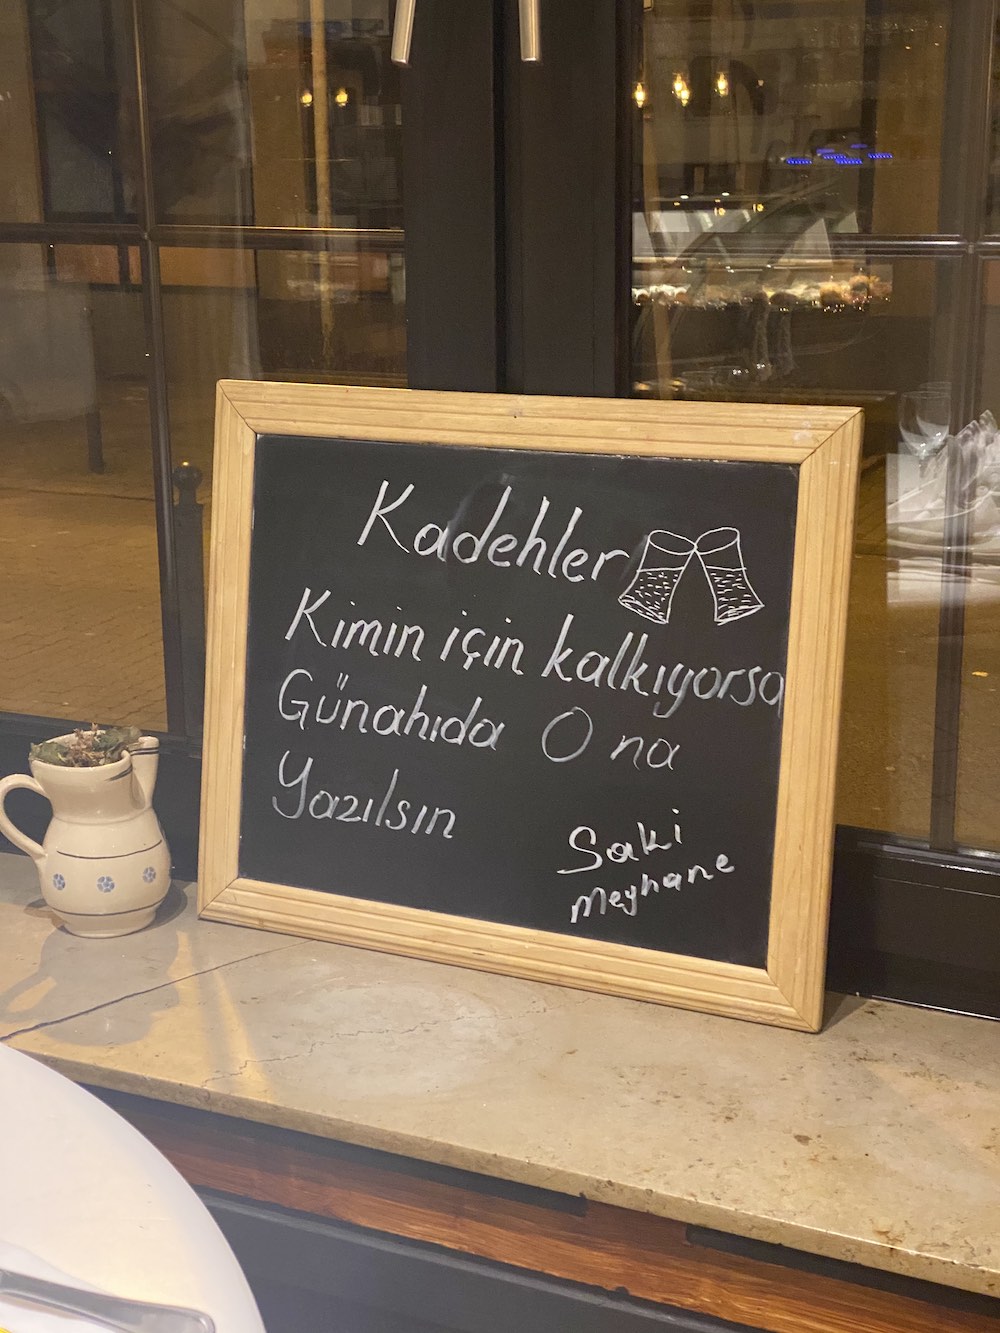 Kadehler
Kimin için kalkıyorsa
Günahıda O na
Yazılsın
Saki
meyhane